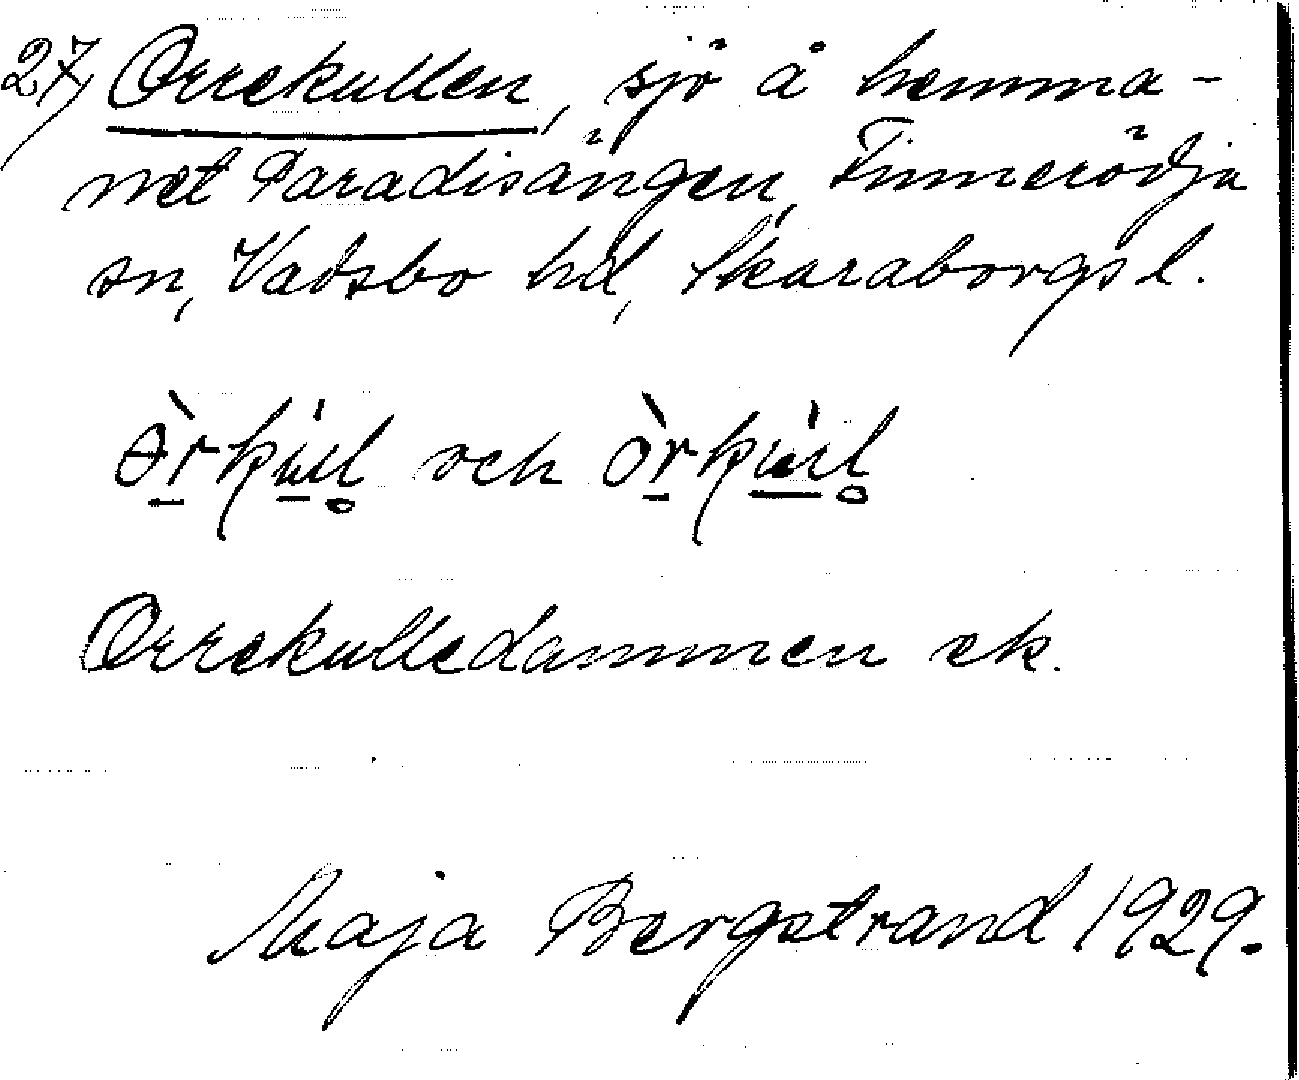 27) Orrekullen, sjö å hemma-
net Paradisängen, Finnerödja
sn, Vadsbo hd, Skaraborgs l.
och
Orrekulledammen ek.
Maja Bergstrand 1929.